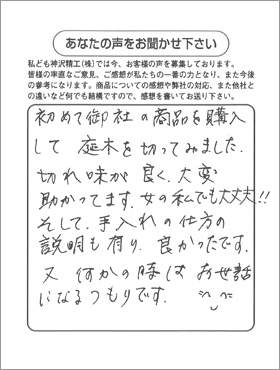 あなたの声をお聞かせ下さい
私ども神沢精工(株)では今、お客様の声を募集しております。
皆様の率直なご意見、ご感想が私たちの一番の力となり、また今後
の参考になります。商品についての感想や弊社の対応、また他社と
の違いなど何でも結構ですので、感想を書いてお送り下さい。
初めて御社の商品を購入
して 庭木を切ってみました。
切れ味が 良く、大変
助かってます。女の私でも大丈夫!!
そして、手入れの仕方の
説明も有り、良かったです。
又 何かの時は お世話
になるつもりです。